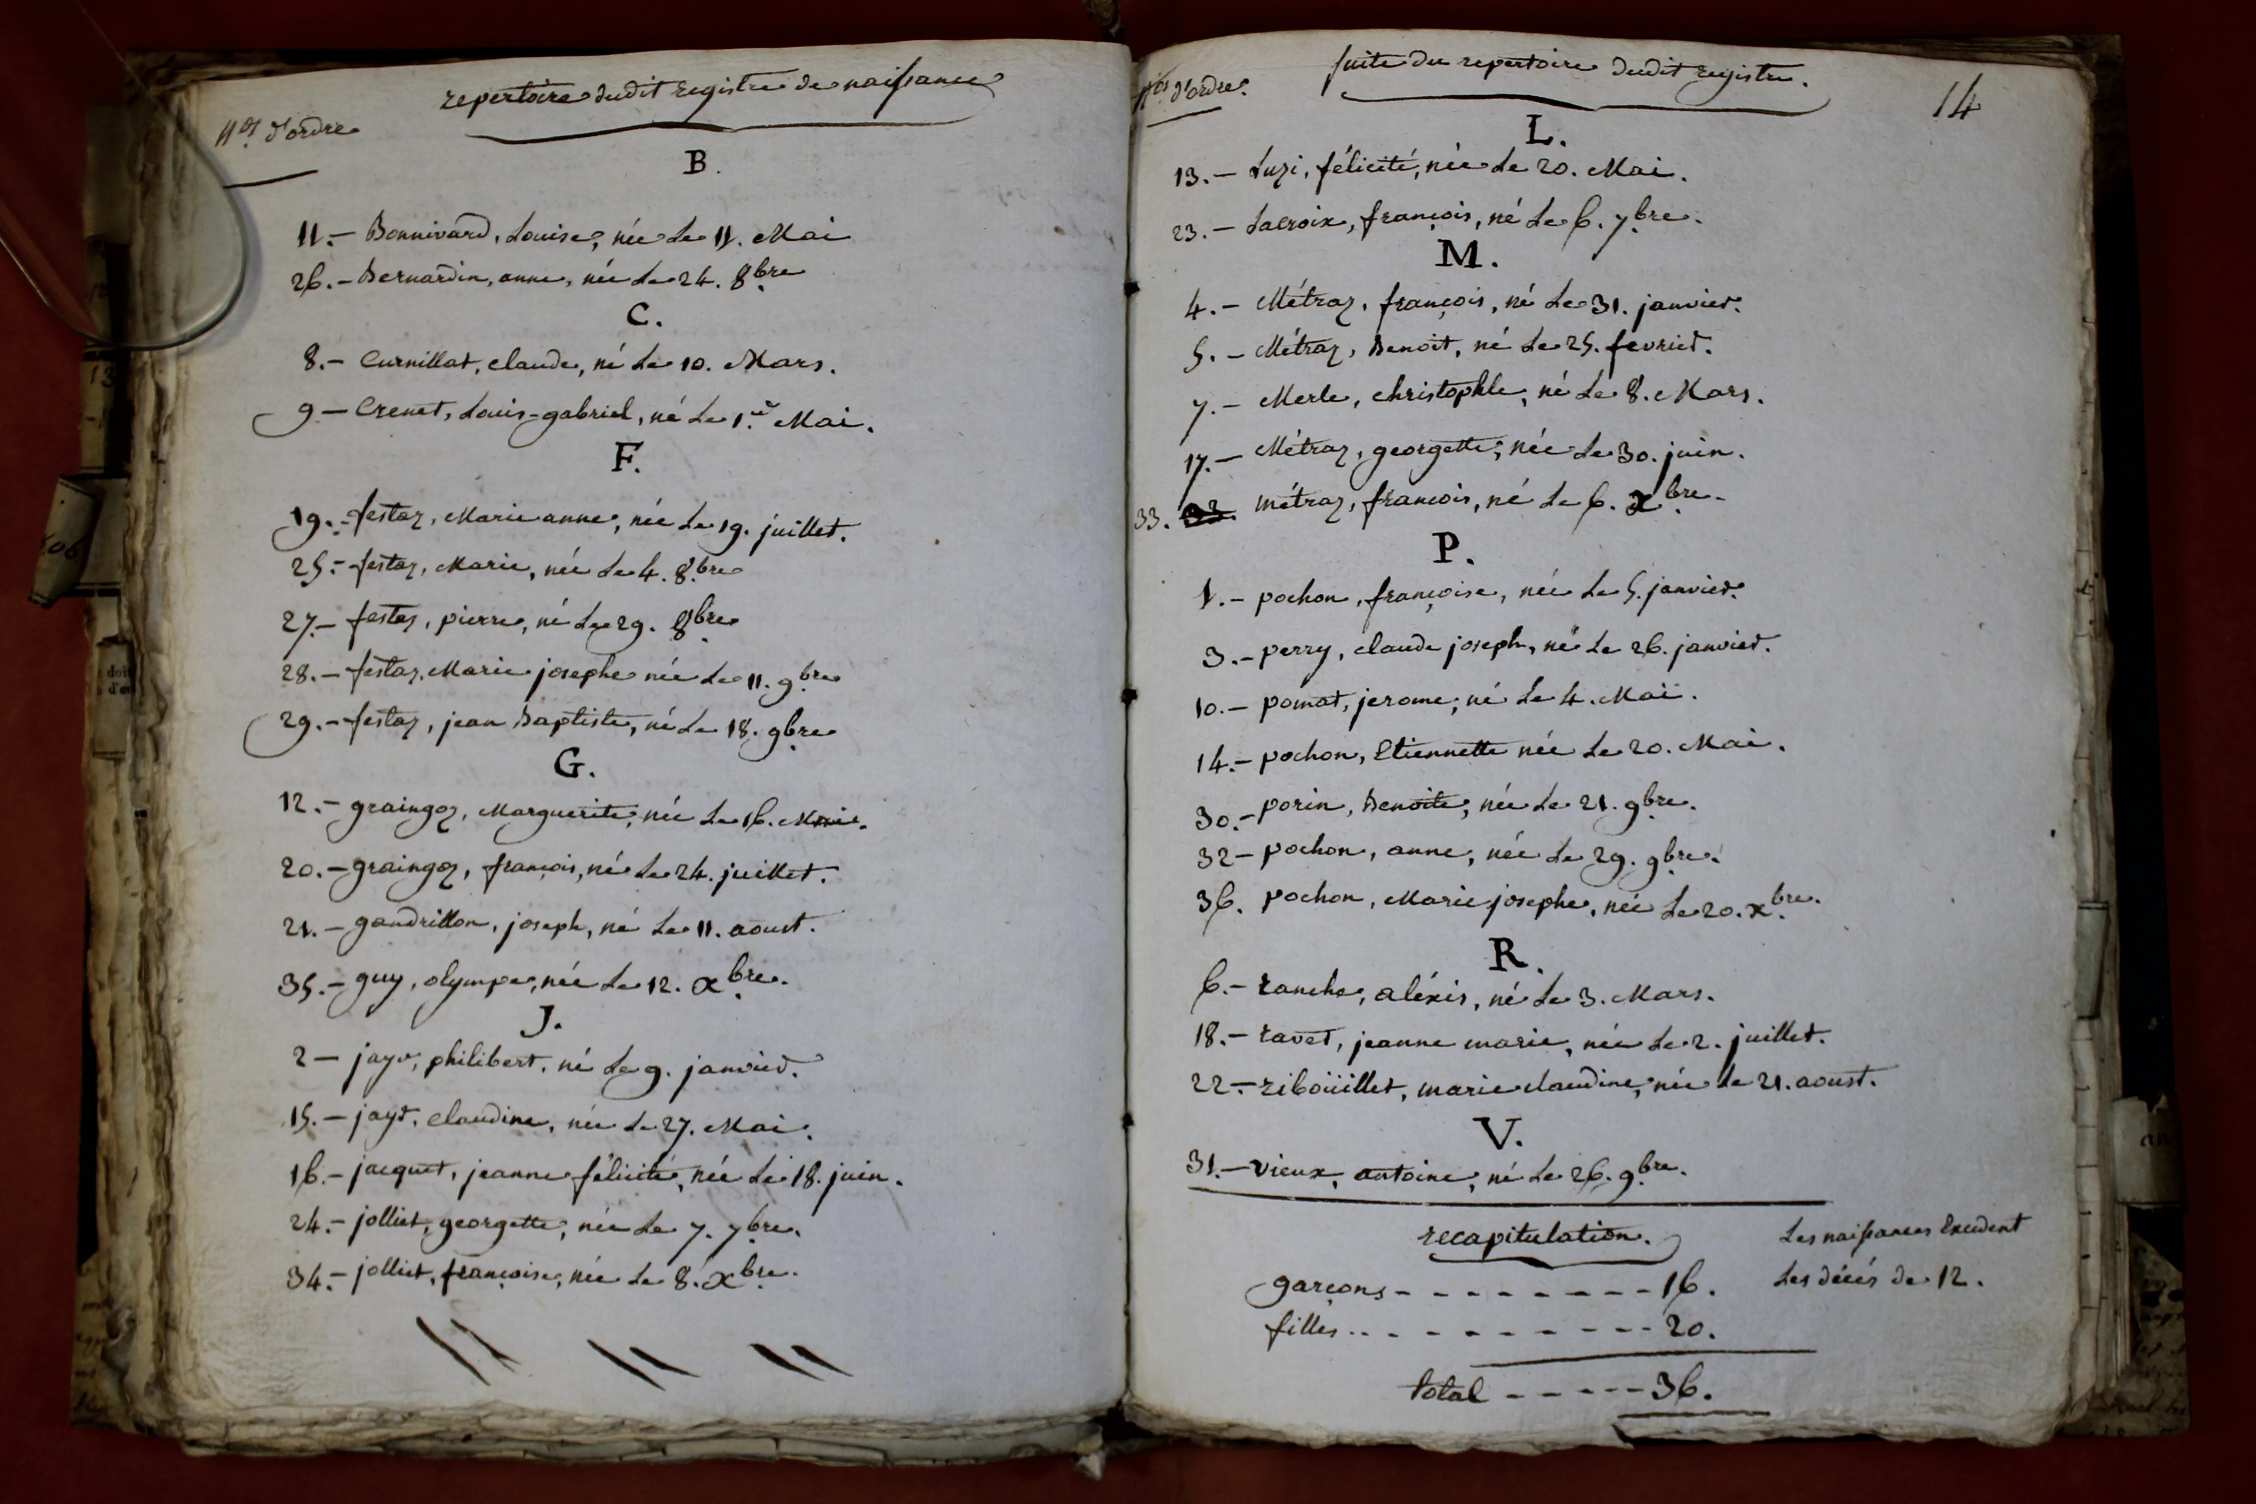 repertoire dudit registre de naissance
Nos. d'ordre
B.
11. — Bonnivard, Louise, née Le 11. Mai
26. — Bernardin, anne, née Le 24. 8bre
C.
8. — Curnillat, claude, né Le 10. Mars.
9 — Crenet, Louis-gabriel, né Le 1.er Mai.
F.
19. — festaz, Marie anne, née Le 19. juillet.
25. — festaz, Marie, née Le 4. 8bre
27. — festaz, pierre, né Le 29. 8bre
28. — festaz, Marie josephe née Le 11. 9bre
29. — festaz, jean Baptiste, né Le 18. 9bre
G.
12. — graingoz, Marguerite, née Le 16. Mai.
20. — graingoz, françois, né Le 24. juillet.
21. — gandrillon, joseph, né Le 11. aoust.
35. — guy, olympe, née Le 12. xbre.
J.
2 — jayr, philibert, né Le 9. janvier.
15. — jayr, claudine, née Le 27. Mai.
16. — jacquet, jeanne félicité, née Le 18. juin.
24. — jolliet, georgette, née Le 7. 7bre.
34. — jolliet, françoise, née Le 8. xbre.
suite du repertoire dudit registre.
Nos d'ordre.
14
L.
13. — Luzi, félicité, née Le 20. Mai.
23. — Lacroix, françois, né Le 6. 7bre.
M.
4. — Métraz, françois, né Le 31. janvier.
5. — Métraz, Benoit, né Le 25. fevrier.
7. — Merle, christophle, né Le 8. Mars.
17. — Métraz, georgette, née Le 30. juin.
33. 33. métraz, francois, né Le 6. xbre.
P.
1. — pochon, françoise, née Le 5. janvier.
3. — perry, claude joseph, né Le 26. janvier.
10. — pomat, jerome, né Le 4. Mai.
14. — pochon, Etiennette née Le 20. Mai.
30. — porin, Benoite, née Le 21. 9bre.
32 — pochon, anne, née Le 29. 9bre.
36. pochon, Marie josephe, née Le 20. xbre.
R.
6. — ranche, aléxis, né Le 3. Mars.
18. — ravet, jeanne marie, née Le 2. juillet.
22. — riboüillet, marie claudine, née Le 21. aoust.
V.
31. — vieux, antoine, né Le 26. 9bre.
recapitulation.
garçons - - - - - - - - - 16.
filles - - - - - - - - - - 20.
total - - - - - 36.
Les naissances Excedent
Les décés de 12.